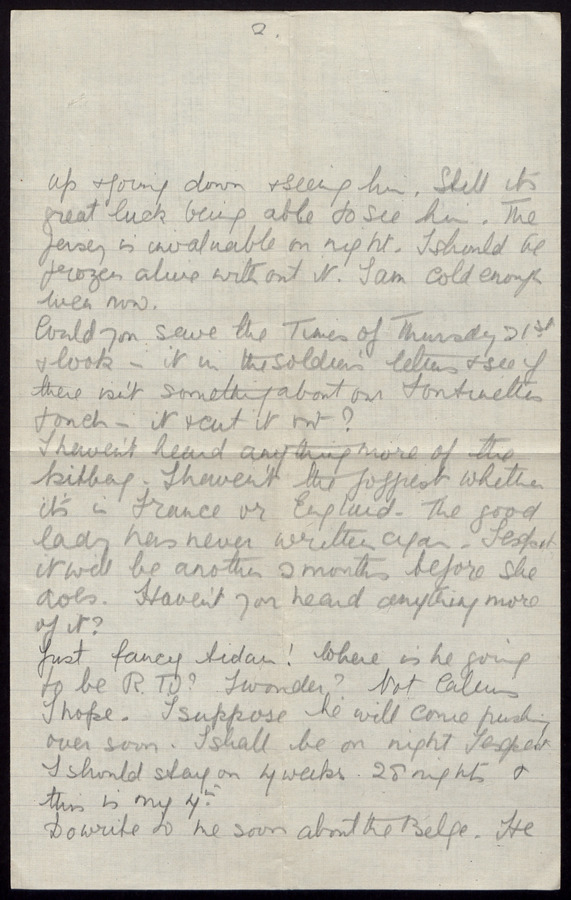 2.
up & going down & seeing him. Still its
great luck being able to see him. The
jersey is invaluable on night. I should be
frozen alive without it. I am cold enough
even now.
Could you save the Times of Thursday 21st
& look in it in the soldiers letters & see if
there isn't something about our
touch in it & cut it out?
I haven't heard anything more of the
kitbag. I haven't the foggiest whether
it's in France or England. The good
lady has never written again. I expect
it will be another 2 months before she
does. Haven't you heard anything more
of it?
Just fancy Aidan! Where is he going
to be R.T.O? I wonder? Not Calais
I hope. I suppose he will come
over soon. I shall be on night I expect
I should stay on 4 weeks. 28 nights &
this is my 4th
Do write to me soon about the Belge. He